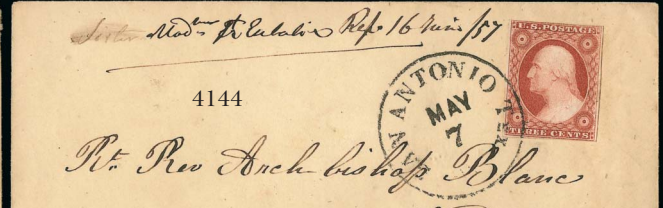 Sister Mad^me St Eulalie Rép 16 Juin /57
U.S. POSTAGE
THREE CENTS
SAN ANTONIO TEX
MAY
7
4144
Rt. Rev Archbishop Blanc